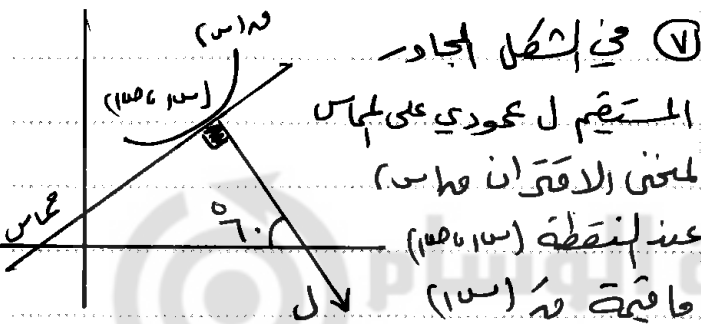 ٧ في الشكل المجاور
المستقيم ل عمودي على المماس
لمنحنى الاقتران ق(س)
عند النقطة (س١، ص١)
ما قيمة قَ(س١)
ق(س)
(س١، ص١)
مماس
٦٠°
ل